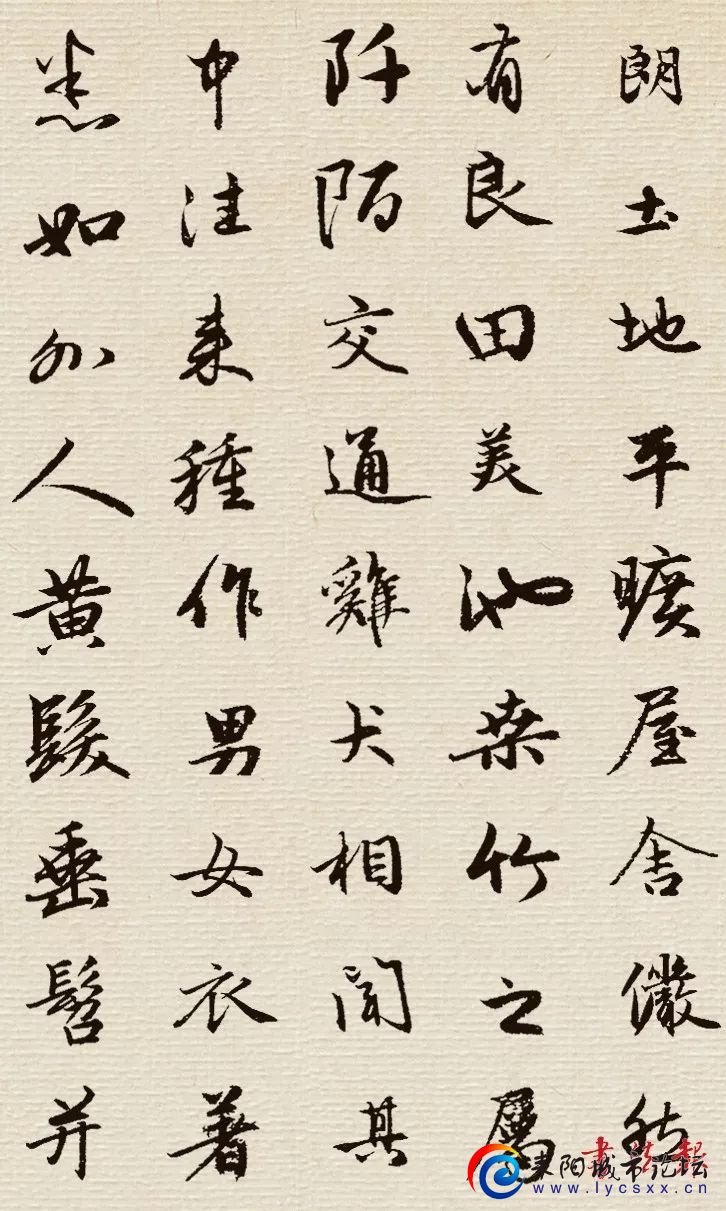 朗土地平曠屋舍儼然
有良田美池桑竹之屬
阡陌交通雞犬相聞其
中往来種作男女衣著
悉如外人黄髮垂髫并
書法報
耒阳城市论坛
www.lycsxx.cn